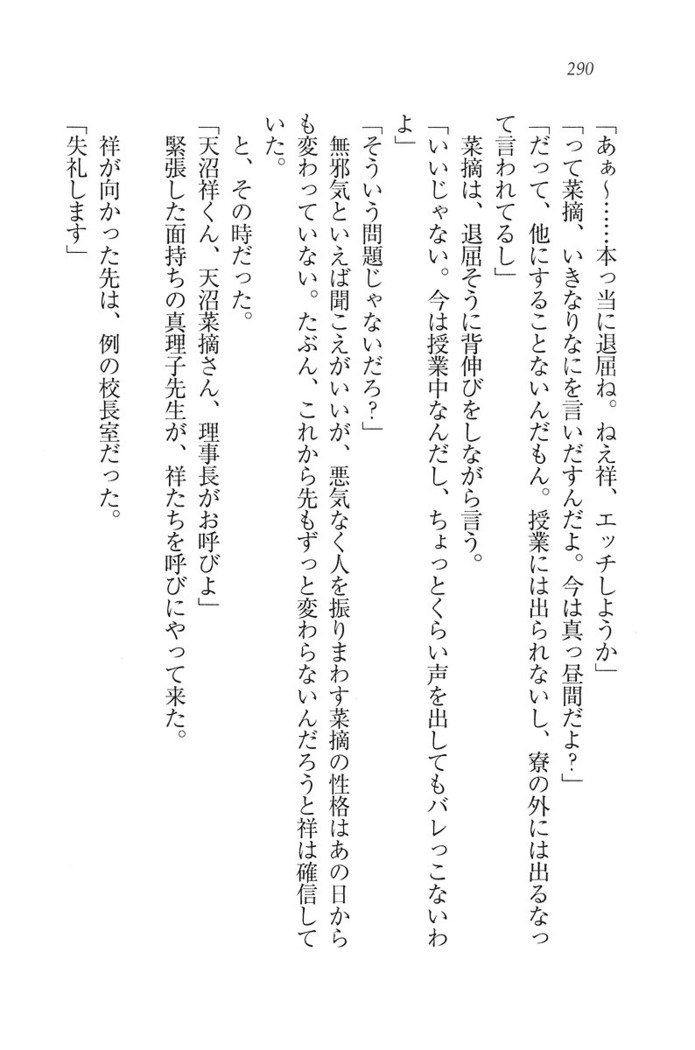 290
「あぁ～……本っ当に退屈ね。ねえ祥、エッチしようか」
「って菜摘、いきなりなにを言いだすんだよ。今は真っ昼間だよ？」
「だって、他にすることないんだもん。授業には出られないし、寮の外には出るなっ
て言われてるし」
菜摘は、退屈そうに背伸びをしながら言う。
「いいじゃない。今は授業中なんだし、ちょっとくらい声を出してもバレっこないわ
よ」
「そういう問題じゃないだろ？」
無邪気といえば聞こえがいいが、悪気なく人を振りまわす菜摘の性格はあの日から
も変わっていない。たぶん、これから先もずっと変わらないんだろうと祥は確信して
いた。
と、その時だった。
「天沼祥くん、天沼菜摘さん、理事長がお呼びよ」
緊張した面持ちの真理子先生が、祥たちを呼びにやって来た。
祥が向かった先は、例の校長室だった。
「失礼します」